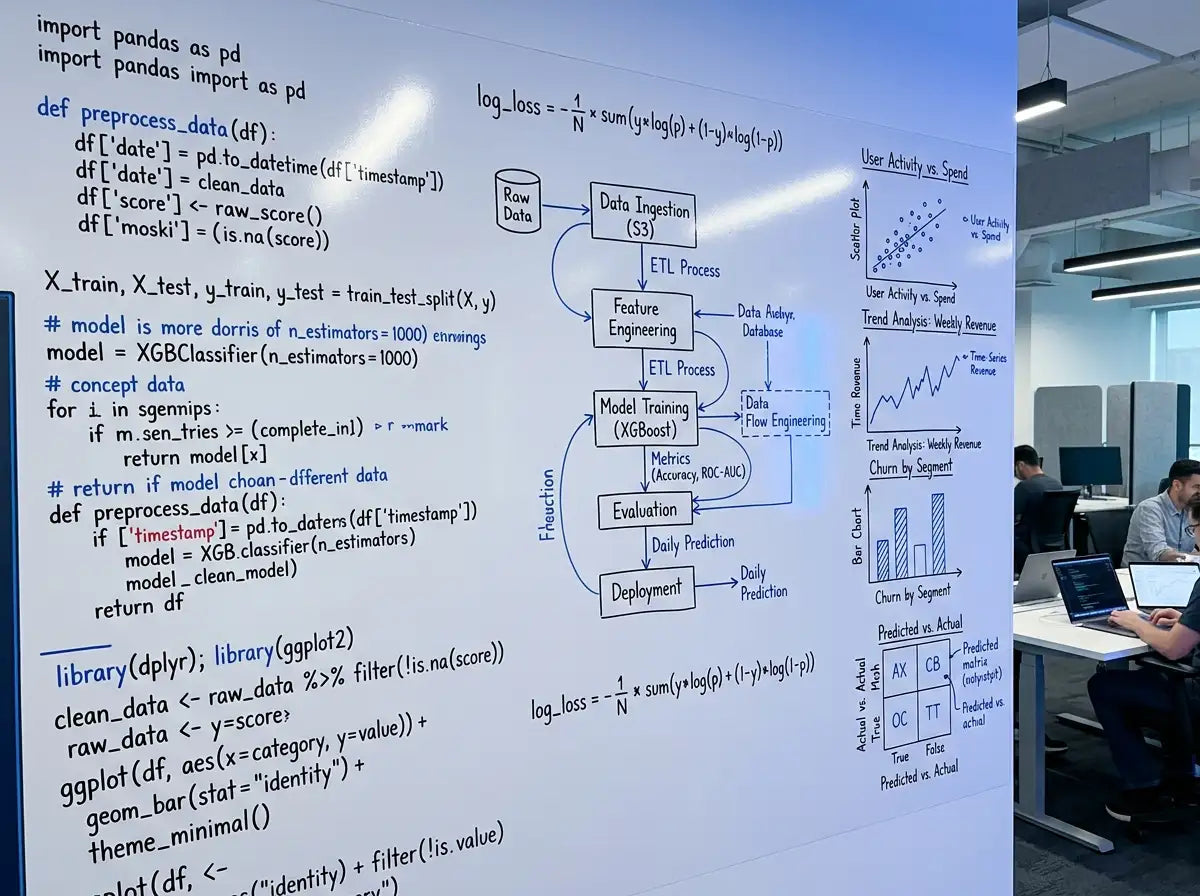 import pandas as pd
import pandas import as pd
def preprocess_data(df):
df['date'] = pd.to_datetime(df['timestamp'])
df['date'] = clean_data
df['score'] <- raw_score()
df['moski'] = (is.na(score))
X_train, X_test, y_train, y_test = train_test_split(X, y)
# model is more dorris of n_estimators=1000)
model = XGBClassifier(n_estimators=1000)
# concept data
for i in sgennips:
if m.sen_tries >= (complete_in1)
return model[x]
# return if model choan-dfferent data
def preprocess_data(df):
if ['timestamp'] = pd.to_daters(df['timestamp'])
model = XGB.classifier(n_estimators)
model_clean_model)
return df
library(dplyr); library(ggplot2)
clean_data <- raw_data %>% filter(!is.na(score))
raw_data <- y=score
ggplot(df, aes(x=category, y=value)) +
geom_bar(stat="identity") +
theme_minimal()
plot(df, <-
("identity) + filter(!is.value)
log_loss = -1/N × sum(y*log(p)+(1-y)*log(1-p))
Raw
Data
Data Ingestion
(S3)
ETL Process
Feature
Engineering
Data
Database
ETL Process
Model Training
(XGBoost)
Data
Flow Engineering
Metrics
(Accuracy, ROC-AUC)
Evaluation
Daily Prediction
Deployment
Daily
Prediction
log_loss = -1/N × sum(y*log(p)+(1-y)*log(1-p))
User Activity vs. Spend
Scatter Plot
User Activity
vs Spend
User Activity vs. Spend
Trend Analysis: Weekly Revenue
Time Revenue
Time-Series
Revenue
Trend Analysis: Weekly Revenue
Churn by Segment
Bar Chart
Churn by Segment
Predicted vs. Actual
Actual vs. Actual
True Moh
AX CB
OC TT
Predicted
matrix
Predicted vs.
actual
True Folse
Predicted vs. Actual